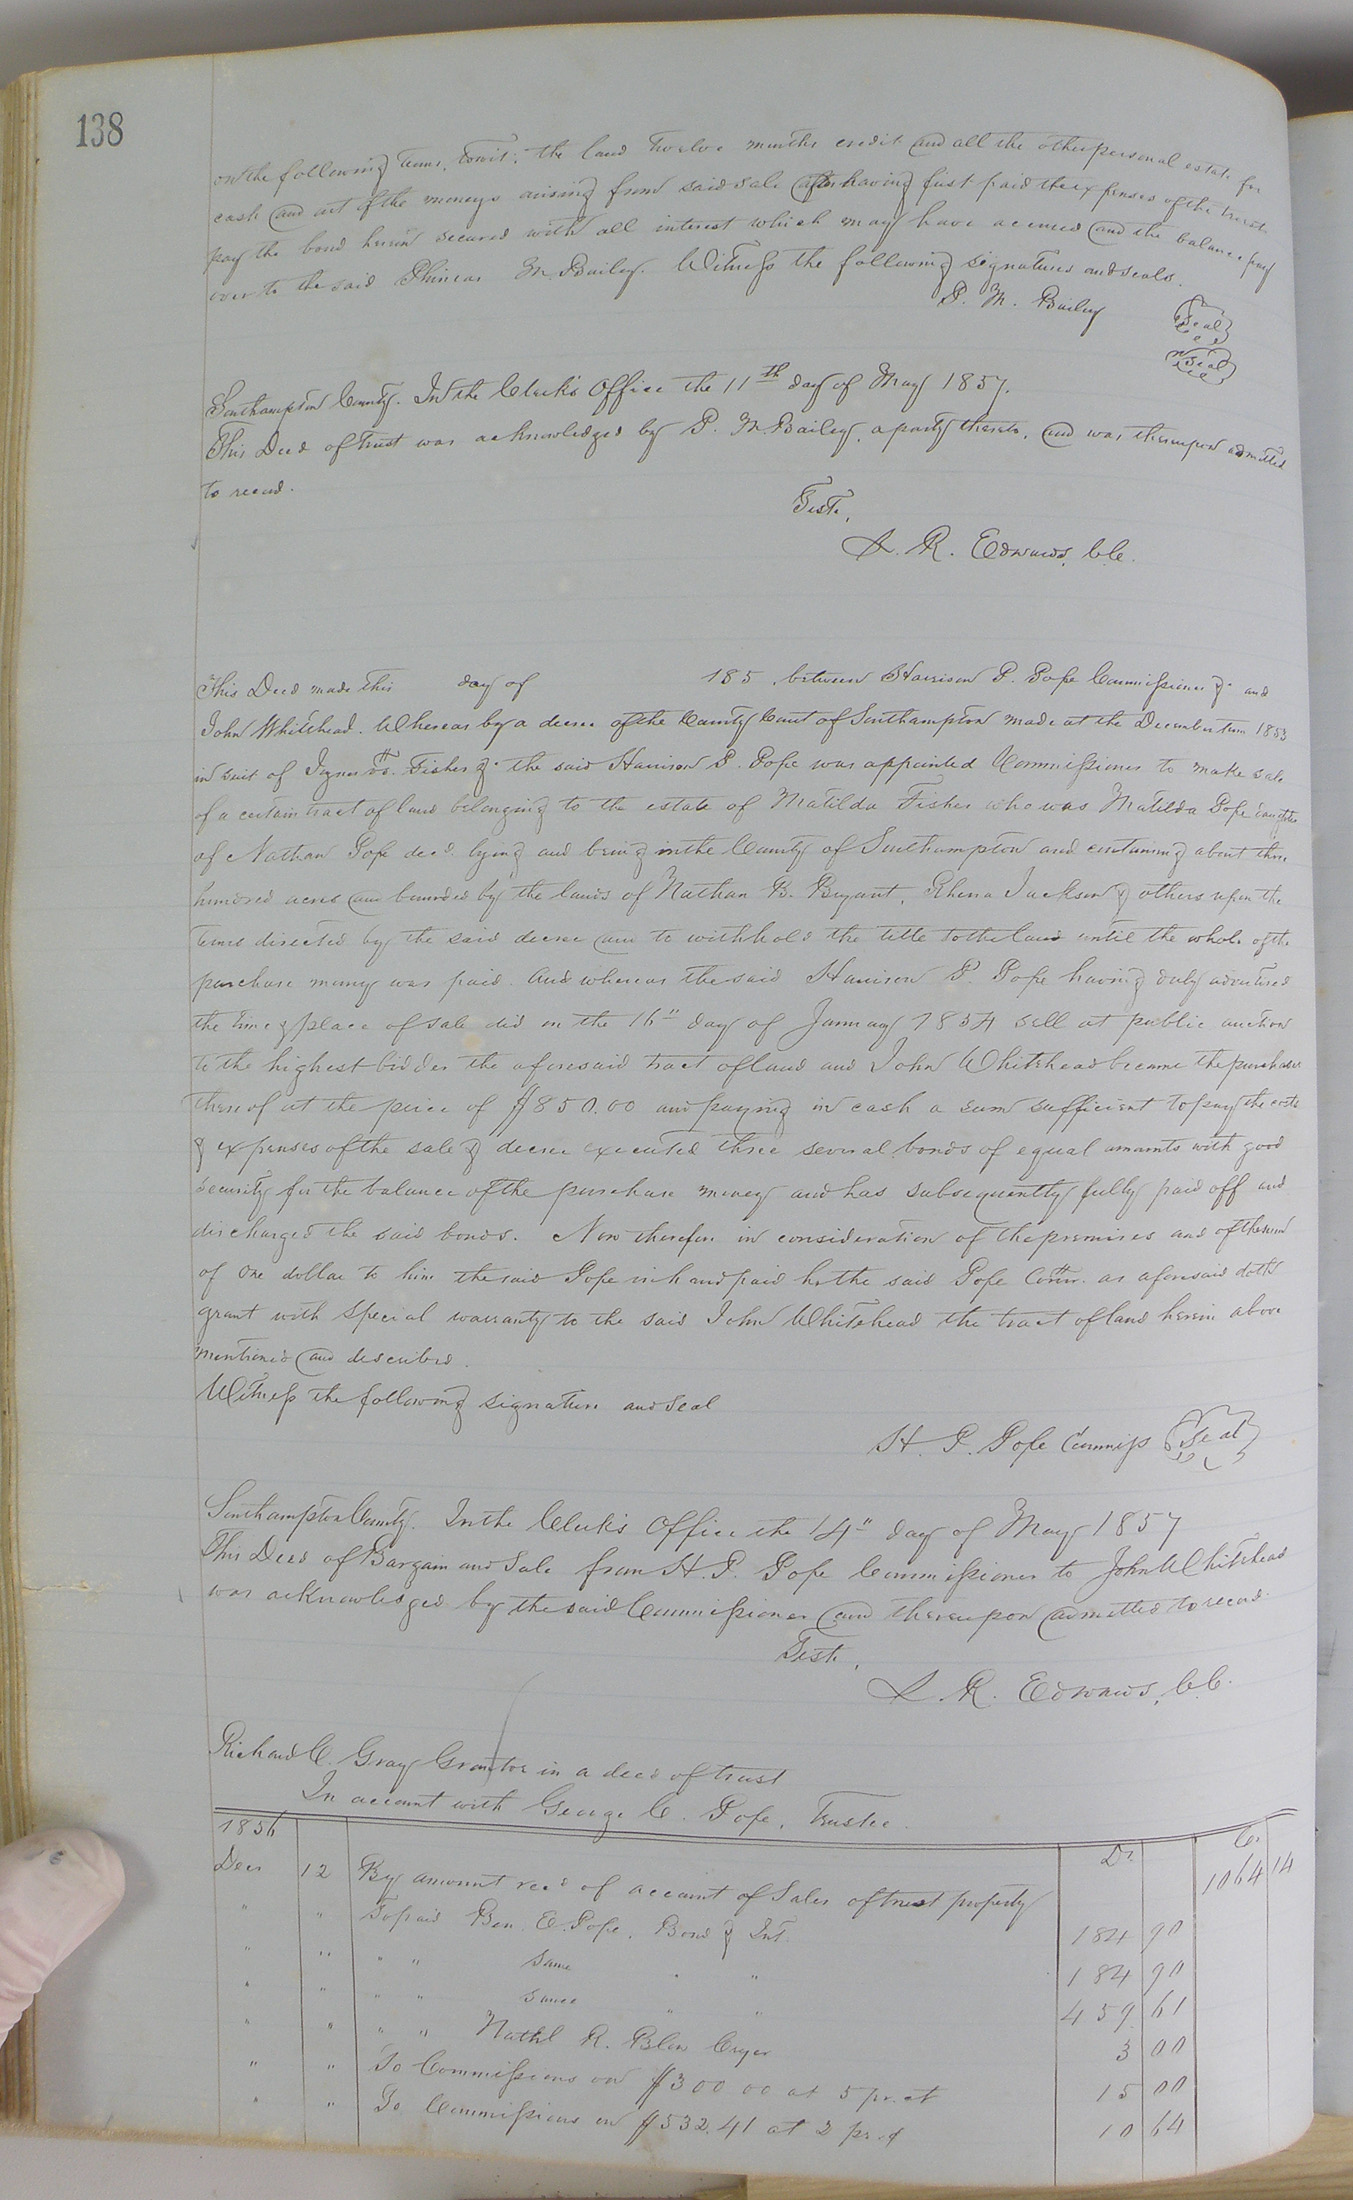 138
on the following terms, towit: the land Twelve months credit and all the other personal estate for
cash and out of the moneys arising from said sale after having first paid the expenses of the trust
pay the bond herein secured with all interest which may have accrued and the balance pay
over to the said Phineas M Bailey. Witness the following signatures and seals.
P. M. Bailey {Seal}
{Seal}
Southampton County. In the Clerk's Office the 11th day of May 1857.
This Deed of trust was acknowledged by P. M. Bailey, a party thereto, and was thereupon admitted
to record.
Teste,
L. R. Edwards, C.C.
This Deed made this day of 185 , between Harrison P. Pope Commissioner &c and
John Whitehead. Whereas by a decree of the County Court of Southampton made at the December term 1853
in suit of vs. Fisher &c the said Harrison P. Pope was appointed Commissioner to make sale
of a certain tract of land belonging to the estate of Matilda Fisher who was Matilda Pope daughter
of Nathan Pope decd. lying and being in the County of Southampton and containing about three
hundred acres and bounded by the lands of Nathan B. Bryant, Rhena Jackson & others upon the
terms directed by the said decree and to withhold the title to the land until the whole of the
purchase money was paid. And whereas the said Harrison P. Pope having duly advertised
the time & place of sale did on the 16" day of January 1854 sell at public auction
to the highest bidder the aforesaid tract of land and John Whitehead became the purchaser
thereof at the price of $850.00 and paying in cash a sum sufficient to pay the costs
& expenses of the sale & decree executed three several bonds of equal amounts with good
security for the balance of the purchase money and has subsequently fully paid off and
discharged the said bonds. Now therefore in consideration of the premises and of the sum
of one dollar to him the said Pope in hand paid he the said Pope Comr. as aforesaid doth
grant with special warranty to the said John Whitehead the tract of land herein above
mentioned and described.
Witness the following signature and seal
H. P. Pope Commiss {Seal}
Southampton County. In the Clerk's Office the 14" day of May 1857
This Deed of Bargain and Sale from H. P. Pope Commissioner to John Whitehead
was acknowledged by the said Commissioner and thereupon admitted to record.
Teste,
L. R. Edwards, C.C.
Richard C. Gray Grantor in a deed of trust
In account with George C. Pope, Trustee.
1856 Dr. Cr.
Decr 12 By amount recd of account of Sales of trust property 1064 14
" " To paid Ben. E. Pope, Bond & Int. 184 90
" " " " Same " " 184 90
" " " " Same " " 459 61
" " " " Nathl R. Blow Cryer 3 00
" " To Commissions on $300 00 at 5 pr. ct 15 00
" " To Commissions on $532.41 at 2 pr. ct 10 64